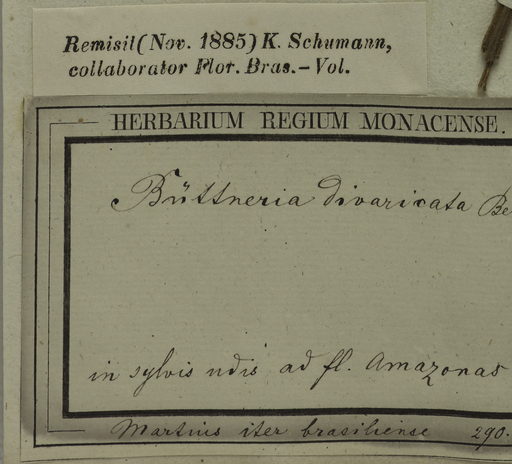 Remisit (Nov. 1885) K. Schumann,
collaborator Flor. Bras. – Vol.
HERBARIUM REGIUM MONACENSE.
Büttneria divaricata Be
in sylvis udis ad fl. Amazonas
Martius iter brasiliense 290.